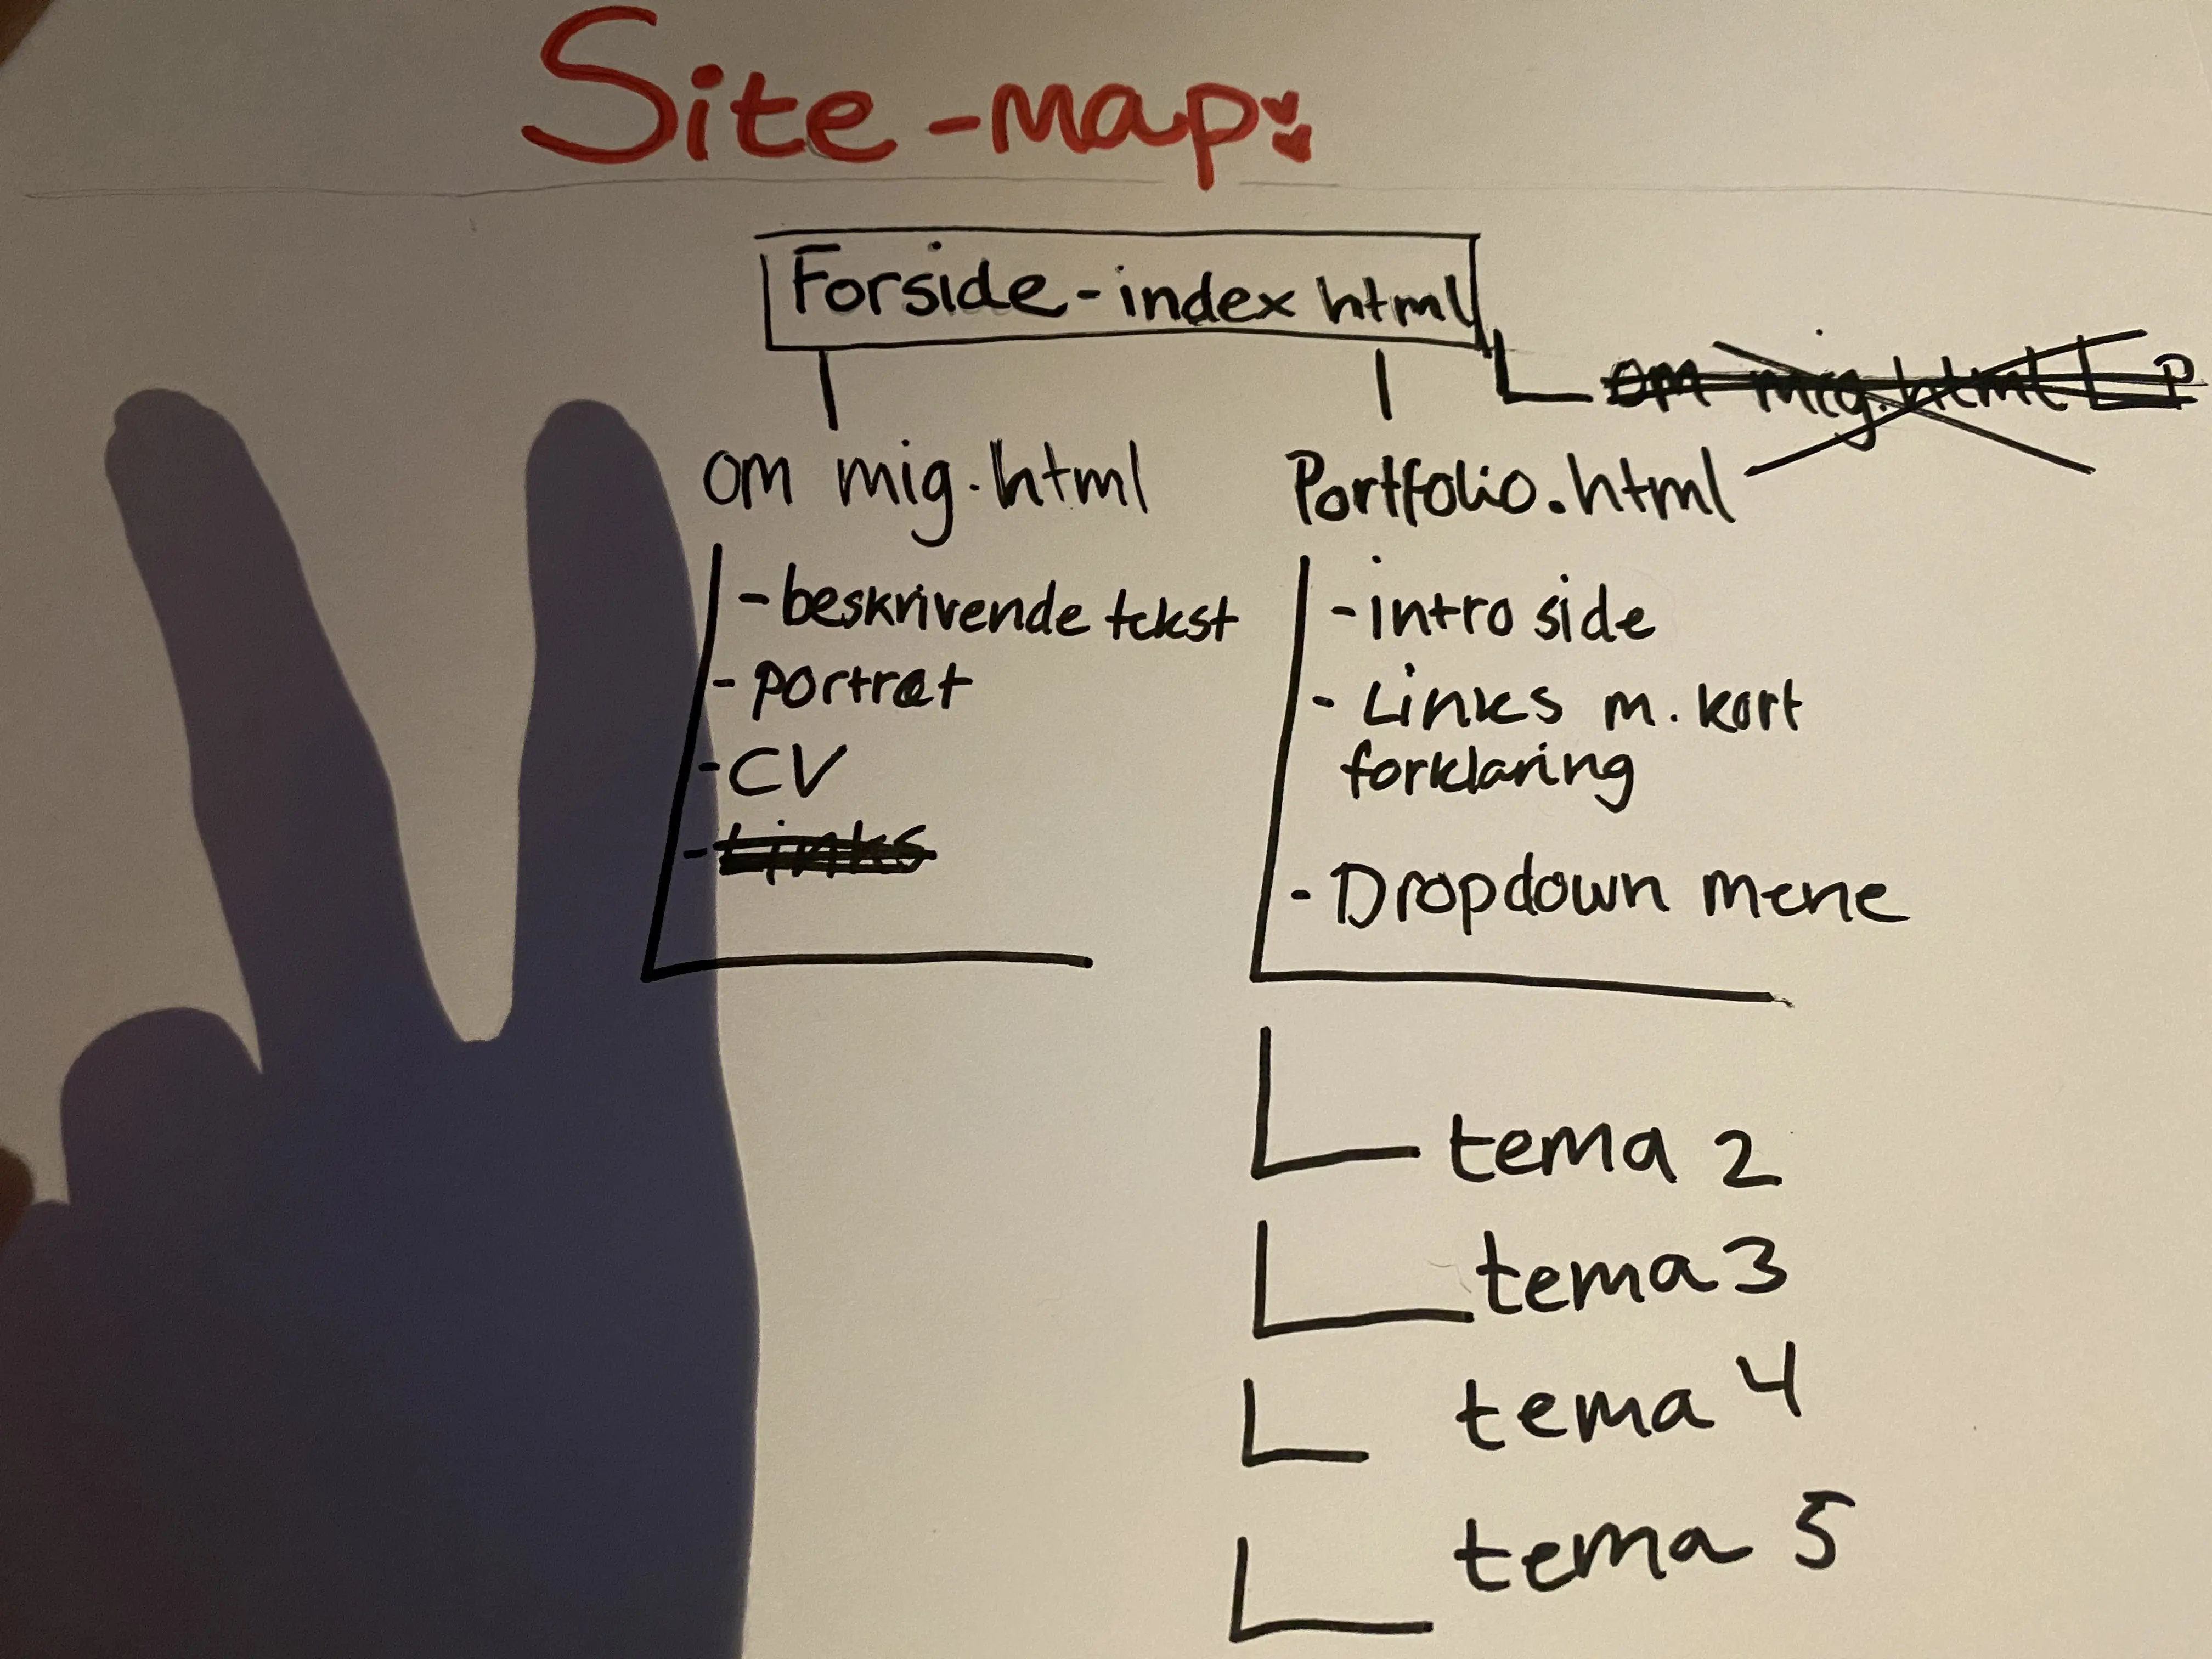 Site-map:
Forside - index html
om mig.html
om mig.html
- beskrivende tekst
- portræt
- CV
- Links
Portfolio.html
- intro side
- Links m. kort
forklaring
- Dropdown mene
tema 2
tema 3
tema 4
tema 5